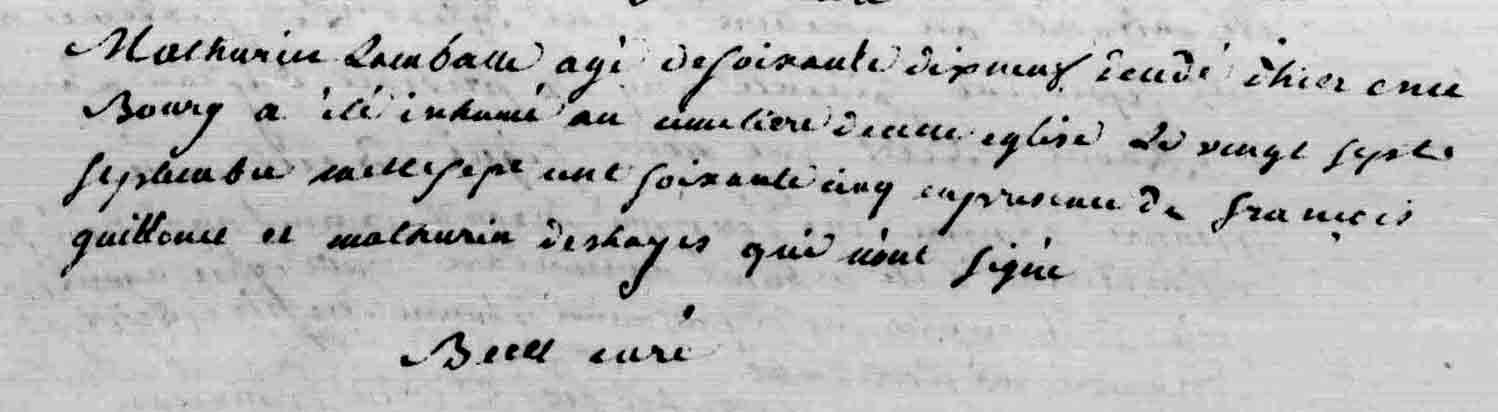 Mathurin Lambau agé de soixante dix neuf decedé d'hier en ce
Bourg a été inhumé au cimetiere de cette eglise Le vingt sept
septembre mille sept cent soixante cinq en presence de françois
guillouet et mathurin deshayes qui n'ont signé
curé